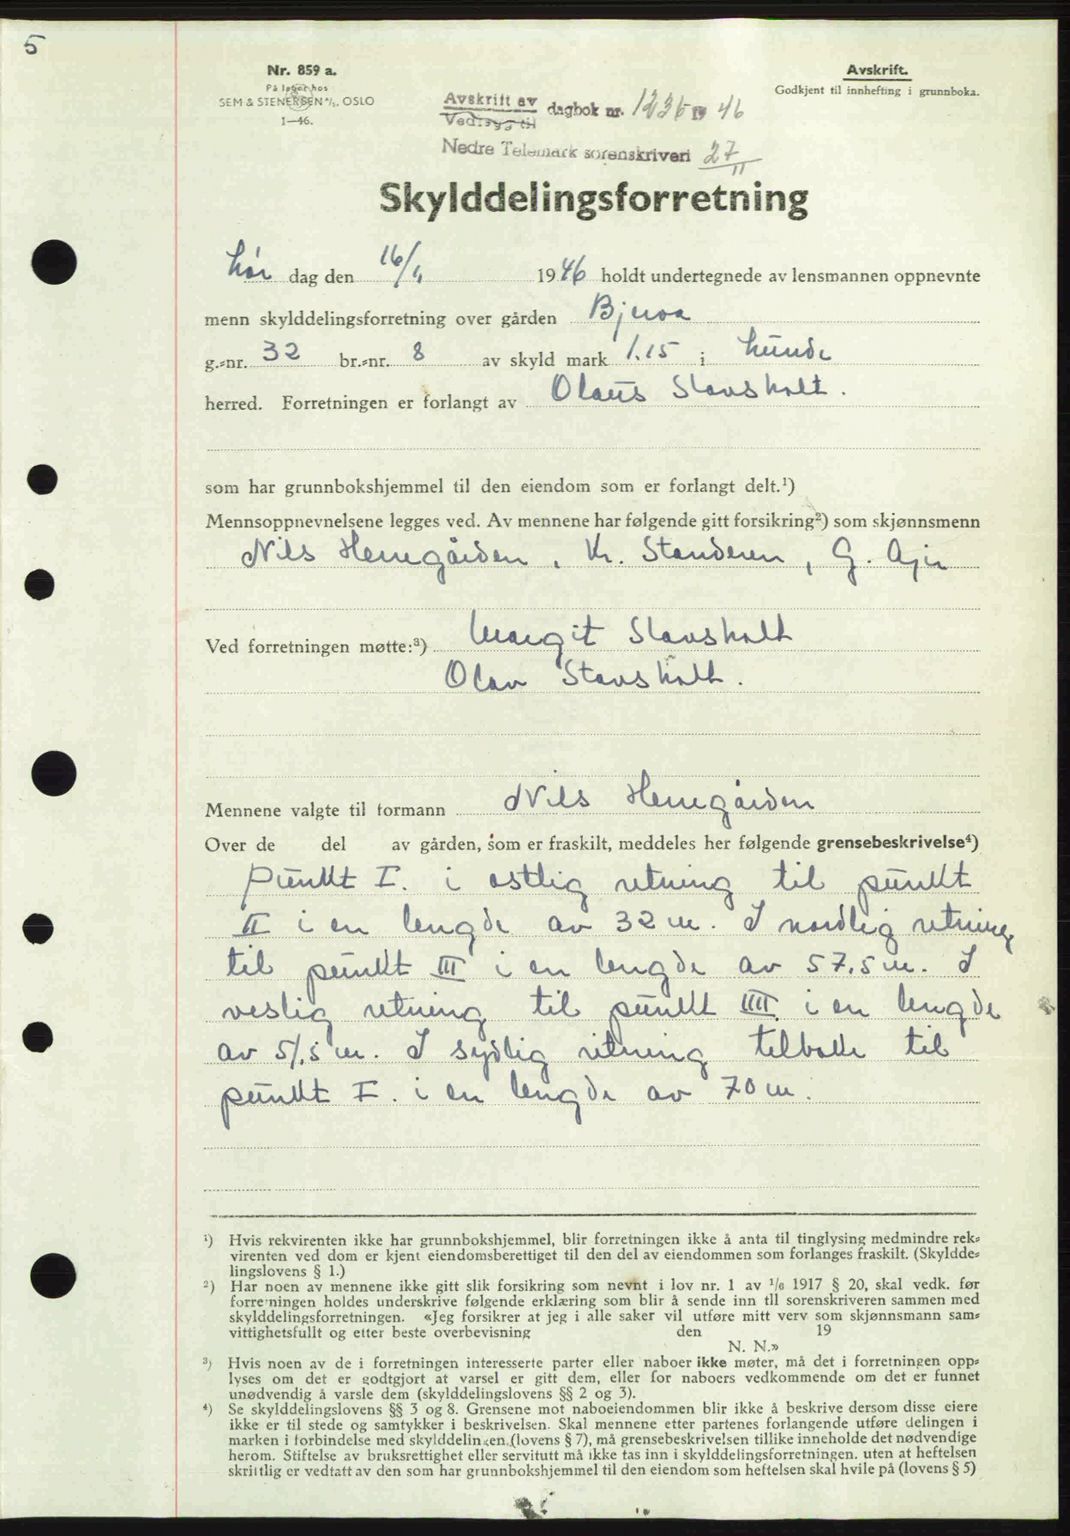 5
Nr. 859 a.
På lager hos
SEM & STENERSEN A/S, OSLO
1—46.
Avskrift.
Godkjent til innhefting i grunnboka.
Avskrift av
Vedlegg til
dagbok nr. 1236 19 46
Nedre Telemark sorenskriveri 27/11
Skylddelingsforretning
Lør dag den 16/11 1946 holdt undertegnede av lensmannen oppnevnte
menn skylddelingsforretning over gården
g.-nr. 32 br.-nr. 8 av skyld mark 1.15 i Lunde
herred. Forretningen er forlangt av Olaus Stavsholt.
som har grunnbokshjemmel til den eiendom som er forlangt delt.¹)
Mennsoppnevnelsene legges ved. Av mennene har følgende gitt forsikring²) som skjønnsmenn
Nils Herregården, Kr. Standeren, G.
Ved forretningen møtte:³) Margit Stavsholt
Olav Stavsholt.
Mennene valgte til formann Nils Herregården
Over de del av gården, som er fraskilt, meddeles her følgende grensebeskrivelse⁴)
Punkt I. i østlig retning til punkt
II i en lengde av 32 m. I nordlig retning
til punkt III i en lengde av 57,5 m. I
vestlig retning til punkt IIII i en lengde
av 51,5 m. I sydlig retning tilbake til
punkt I. i en lengde av 70 m.
¹) Hvis rekvirenten ikke har grunnbokshjemmel, blir forretningen ikke å anta til tinglysing medmindre rek-
virenten ved dom er kjent eiendomsberettiget til den del av eiendommen som forlanges fraskilt. (Skyldde-
lingslovens § 1.)
²) Har noen av mennene ikke gitt slik forsikring som nevnt i lov nr. 1 av 1/6 1917 § 20, skal vedk. før
forretningen holdes underskrive følgende erklæring som blir å sende inn til sorenskriveren sammen med
skylddelingsforretningen. «Jeg forsikrer at jeg i alle saker vil utføre mitt verv som skjønnsmann sam-
vittighetsfullt og etter beste overbevisning den 19
N. N.»
³) Hvis noen av de i forretningen interesserte parter eller naboer ikke møter, må det i forretningen opp-
lyses om det er godtgjort at varsel er gitt dem, eller for naboers vedkommende om det er funnet
unødvendig å varsle dem (skylddelingslovens §§ 2 og 3).
⁴) Se skylddelingslovens §§ 3 og 8. Grensene mot naboeiendommen blir ikke å beskrive dersom disse eiere
ikke er til stede og samtykker i beskrivelsen. Skal mennene etter partenes forlangende utføre delingen i
marken i forbindelse med skylddelingen (lovens § 7), må grensebeskrivelsen tillike inneholde det nødvendige
herom. Stiftelse av bruksrettighet eller servitutt må ikke tas inn i skylddelingsforretningen, uten at heftelsen
skriftlig er vedtatt av den som har grunnbokshjemmel til den eiendom som heftelsen skal hvile på (lovens § 5)